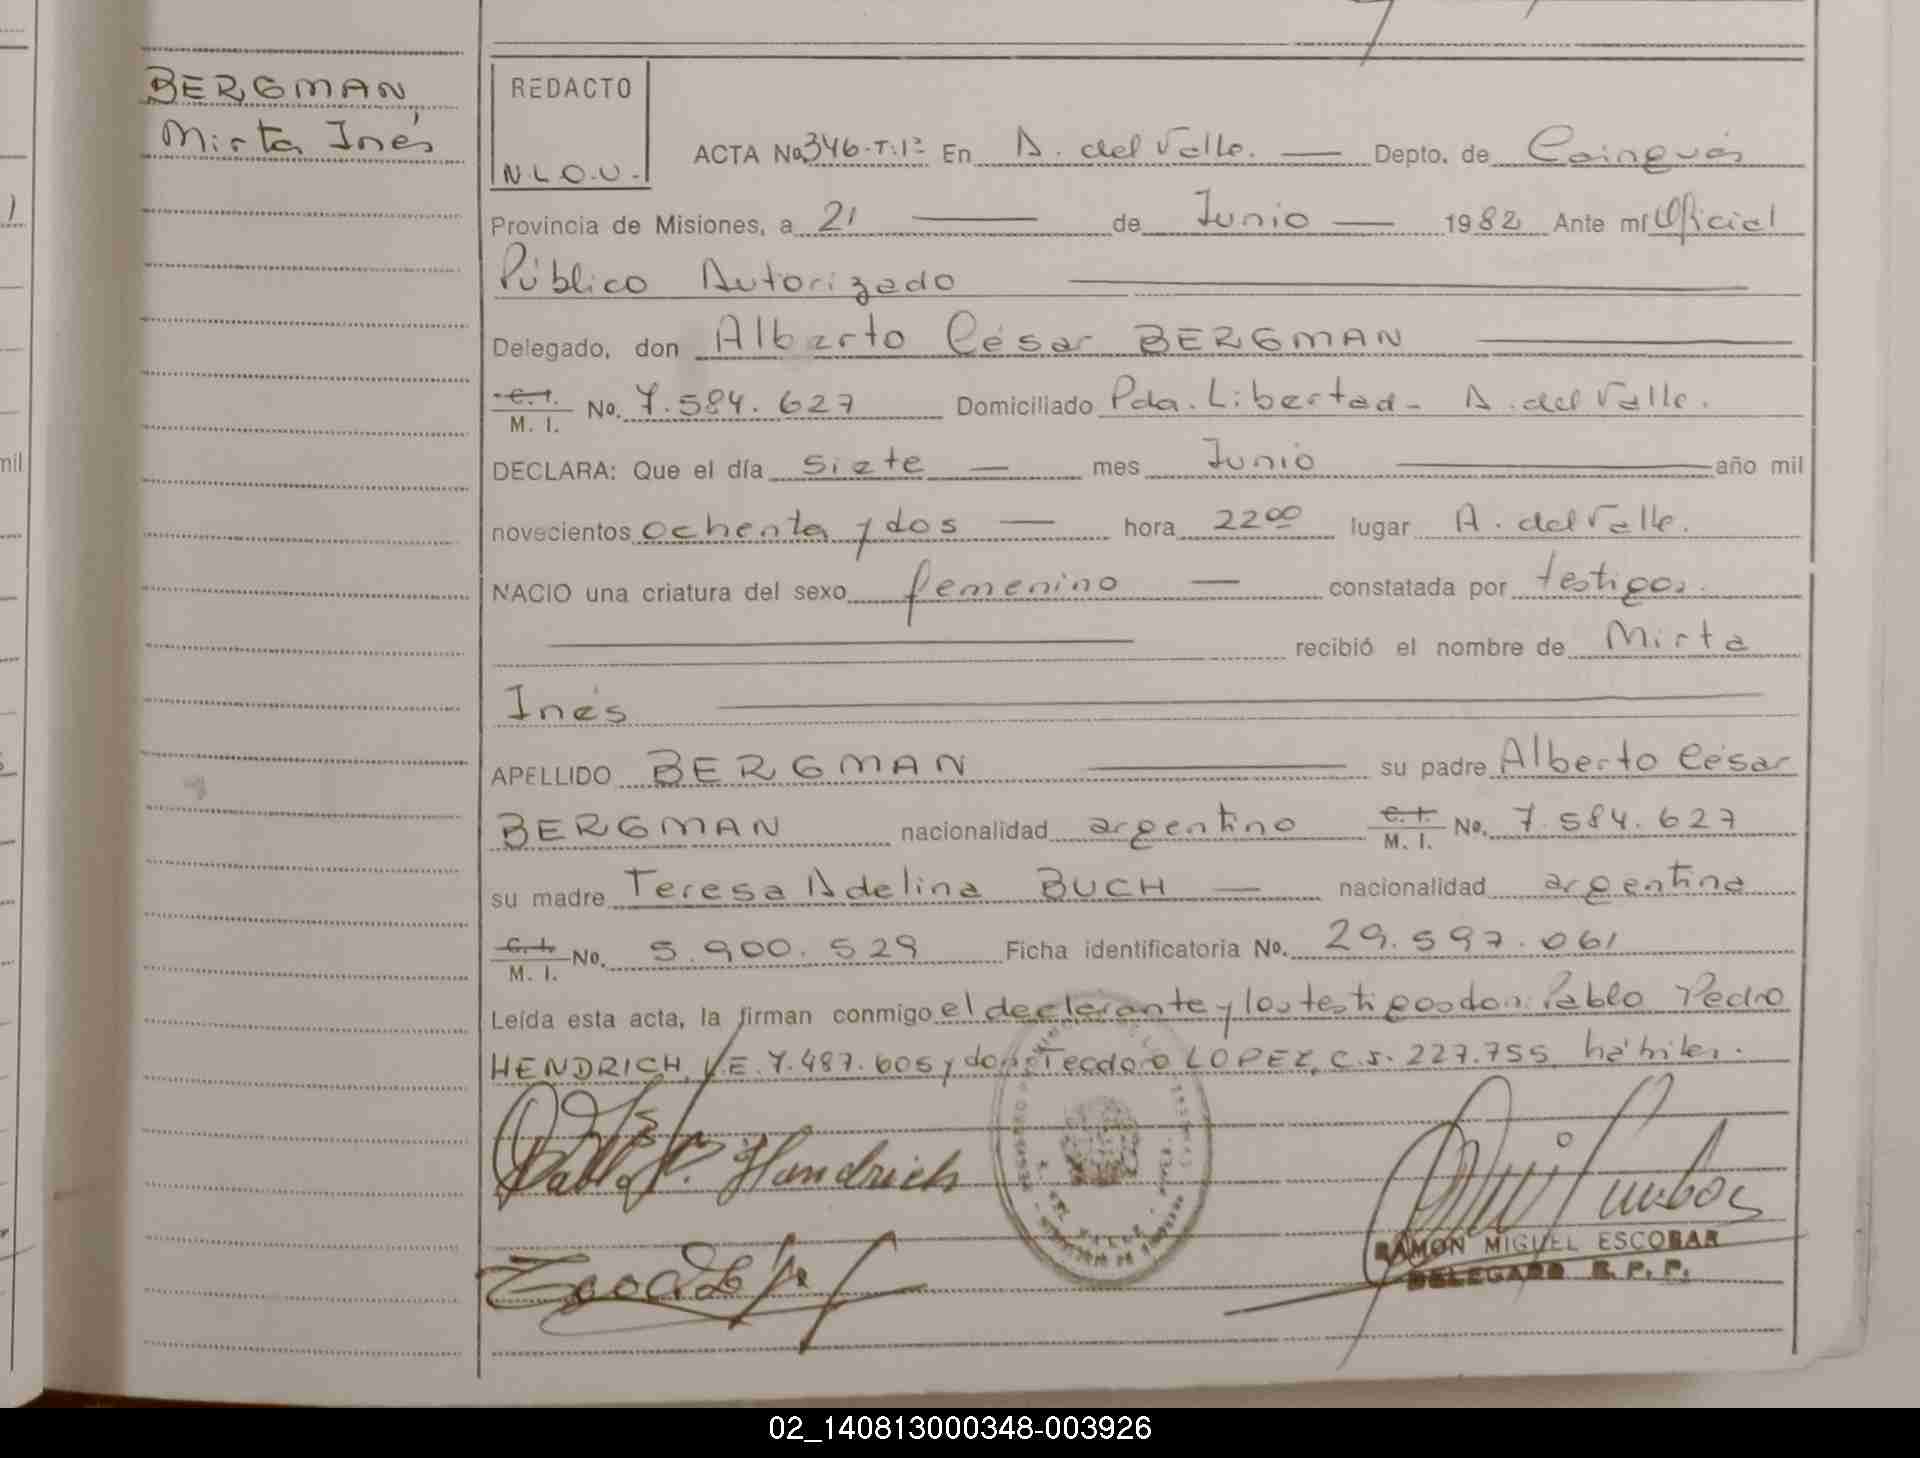 BERGMAN,
Mirta Inés
REDACTO
N.L.O.U.
ACTA No 346-T:1º En A. del Valle. Depto. de Cainguás
Provincia de Misiones, a 21 de Junio 1982 Ante mí Oficial
Público Autorizado
Delegado, don Alberto César BERGMAN
C. I.
M. I. No. 7.584.627 Domiciliado Pda. Libertad - A. del Valle.
DECLARA: Que el día siete mes Junio año mil
novecientos ochenta y dos hora 22⁰⁰ lugar A. del Valle.
NACIO una criatura del sexo femenino constatada por testigos.
recibió el nombre de Mirta
Inés
APELLIDO BERGMAN su padre Alberto César
BERGMAN nacionalidad argentino C. I. M. I. No. 7.584.627
su madre Teresa Adelina BUCH nacionalidad argentina
C. I.
M. I. No. 5.900.529 Ficha identificatoria No. 29.597.061
Leída esta acta, la firman conmigo el declarante y los testigos don: Pablo Pedro
HENDRICH, L.E. 7.487.605 y don: Teodoro LOPEZ, C.I. 227.755, hábiles.
Pablo P. Handrich
RAMON MIGUEL ESCOBAR
DELEGADO R. P. P.
mil
02_140813000348-003926